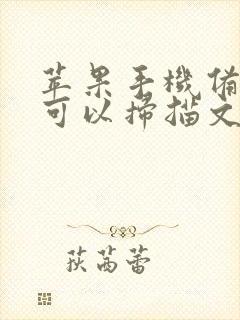 苹果手機備
可以掃描文
荻苒蕾